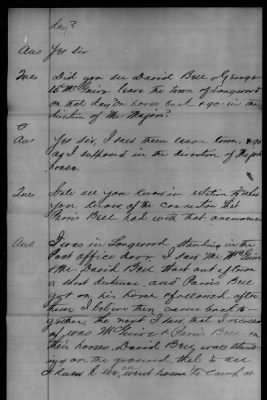 day?
Ans Yes Sir
Ques Did you see David Bell & George
W McGuire leave the town of Longwood
on that day on horse back & go in the
direction of the Majors?
Ans Yes sir, I saw them leave town, & go
as I supposed in the direction of the
house.
Ques State all you know in relation to
you know of the connection that
Parris Bell had with that
Ans I was in Longwood standing in the
Post office door. I saw Mr McGuire
& Mr David Bell start out of town
a short distance, and Parris Bell
got on his horse & followed after
them I believe they came back to-
gether, the next I saw, that I
was McGuire & Parris Bell on
their horses, David Bell was stand
ing on the ground, that is all
I went home to camp